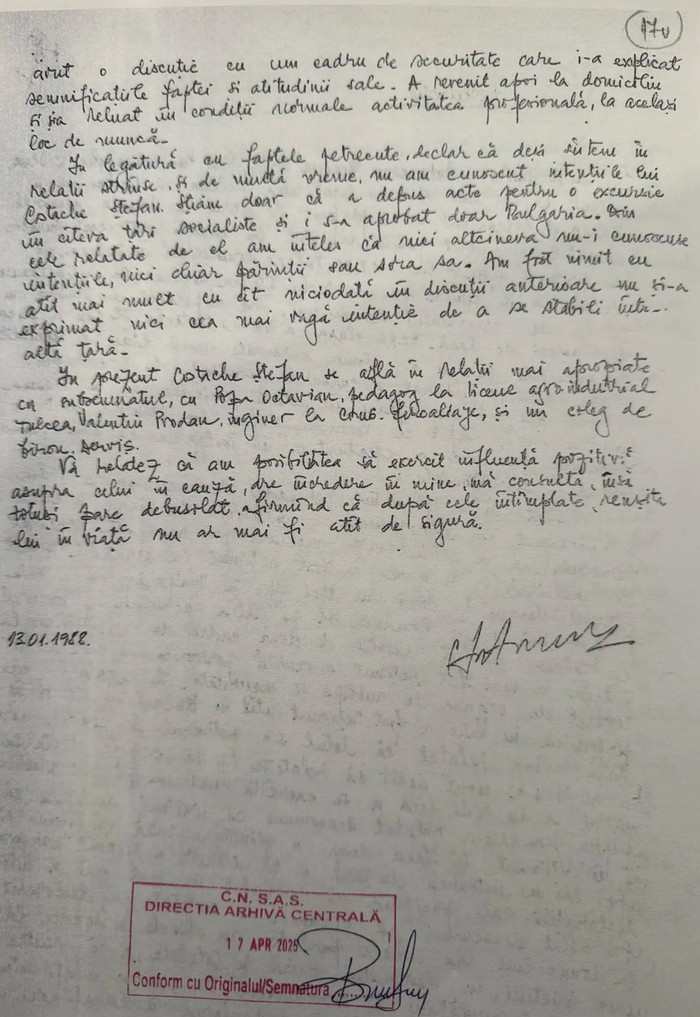 17v
avut o discuție cu un cadru de securitate care i-a explicat
semnificațiile faptei si atitudinii sale. A revenit apoi la domiciliu
și și-a reluat în condiții normale activitatea profesională, la același
loc de muncă.
În legătură cu faptele petrecute, declar că deși sîntem în
relații strînse și de multă vreme, nu am cunoscut intențiile lui
Costache Ștefan. Știam doar că a depus acte pentru o excursie
în cîteva țări socialiste și i s-a aprobat doar Bulgaria. Din
cele relatate de el am înțeles că nici altcineva nu-i cunoscuse
intențiile, nici chiar părinții sau sora sa. Am fost uimit cu
atît mai mult cu cît niciodată în discuții anterioare nu și-a
exprimat nici cea mai vagă intenție de a se stabili într-
altă țară.
În prezent Costache Ștefan se află în relații mai apropiate
cu subsemnatul, cu Popa Octavian, pedagog la liceul agroindustrial
Tulcea, Valentin Prodan, inginer la Comb. feroaliaje, și un coleg de
birou, serviș.
Vă relatez că am posibilitatea să exercit influență pozitivă
asupra celui în cauză, are încredere în mine, mă consultă, însă
totuși pare debusolat, afirmînd că după cele întîmplate, reușita
lui în viață nu ar mai fi atît de sigură.
13.01.1988.
C.N. S.A.S.
DIRECTIA ARHIVĂ CENTRALĂ
17 APR 2025
Conform cu Originalul/Semnatura